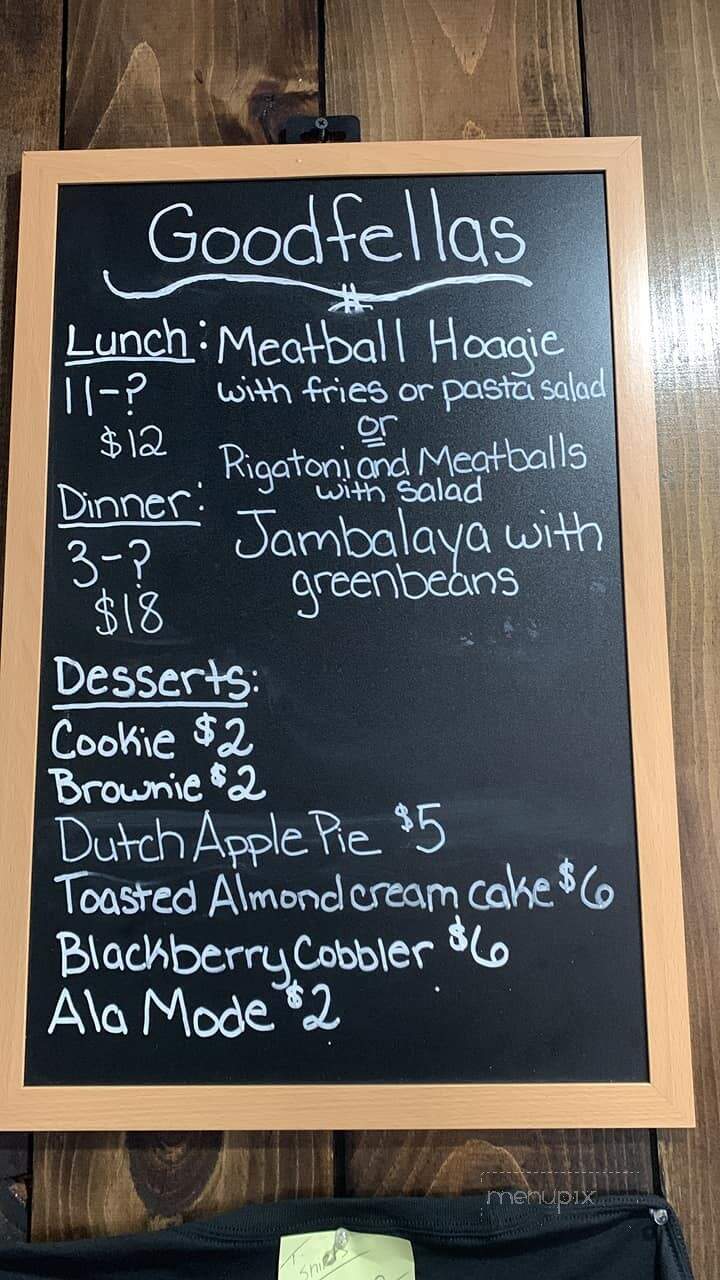 Goodfellas
Lunch: Meatball Hoagie
11-? with fries or pasta salad
or
$12
Rigatoni and Meatballs
with salad
Dinner:
Jambalaya with
3-?
greenbeans
$18
Desserts:
Cookie $2
Brownie $2
Dutch Apple Pie $5
Toasted Almond cream cake $6
Blackberry Cobbler $6
Ala Mode $2
menupix